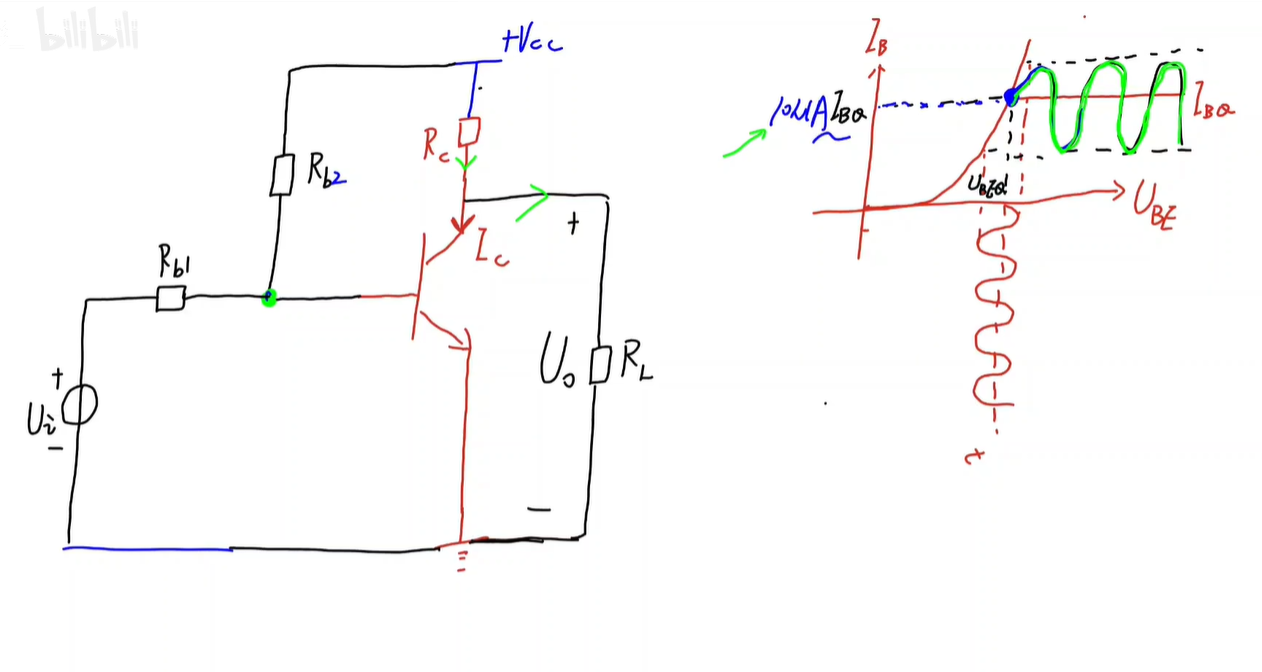 bilibili
+Vcc
Rc
Rb2
Ic
Rb1
+
Ui
−
+
Uo
RL
−
IB
10μA IBQ
IBQ
UBEQ
UBE
t